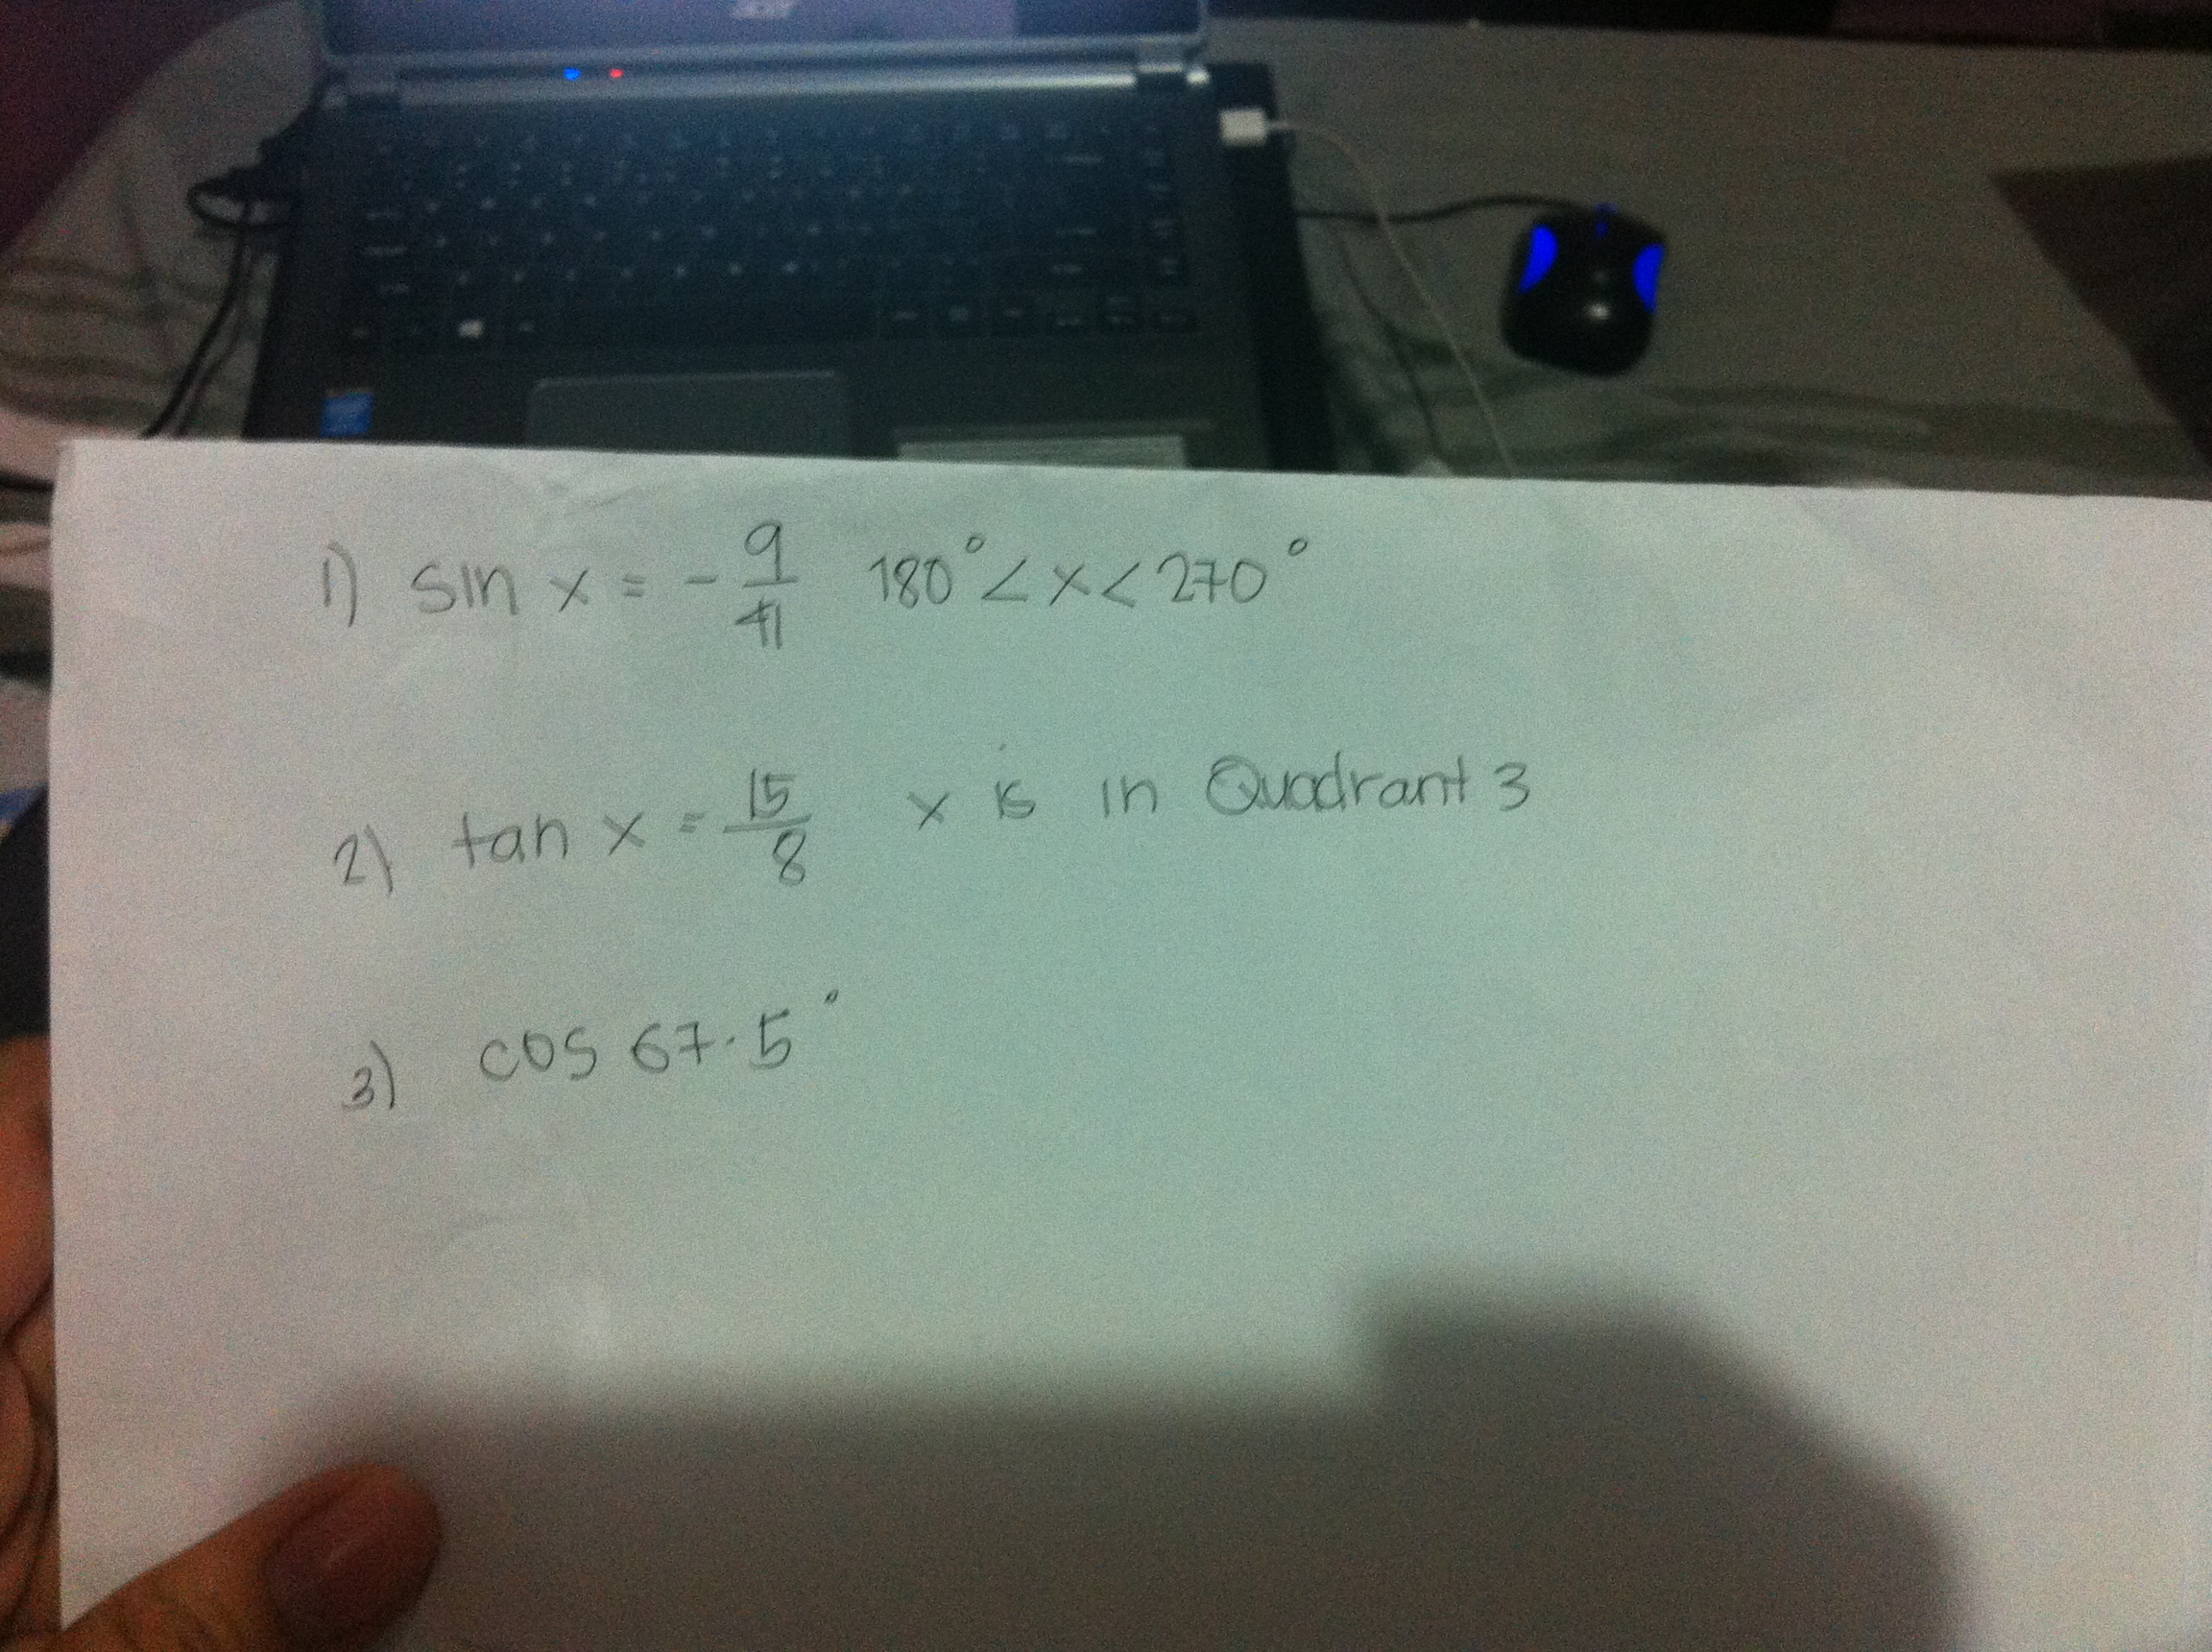 acer
1) sin x = - 9/41 180° < x < 270°
2) tan x = 15/8 x is in Quadrant 3
3) cos 67.5°